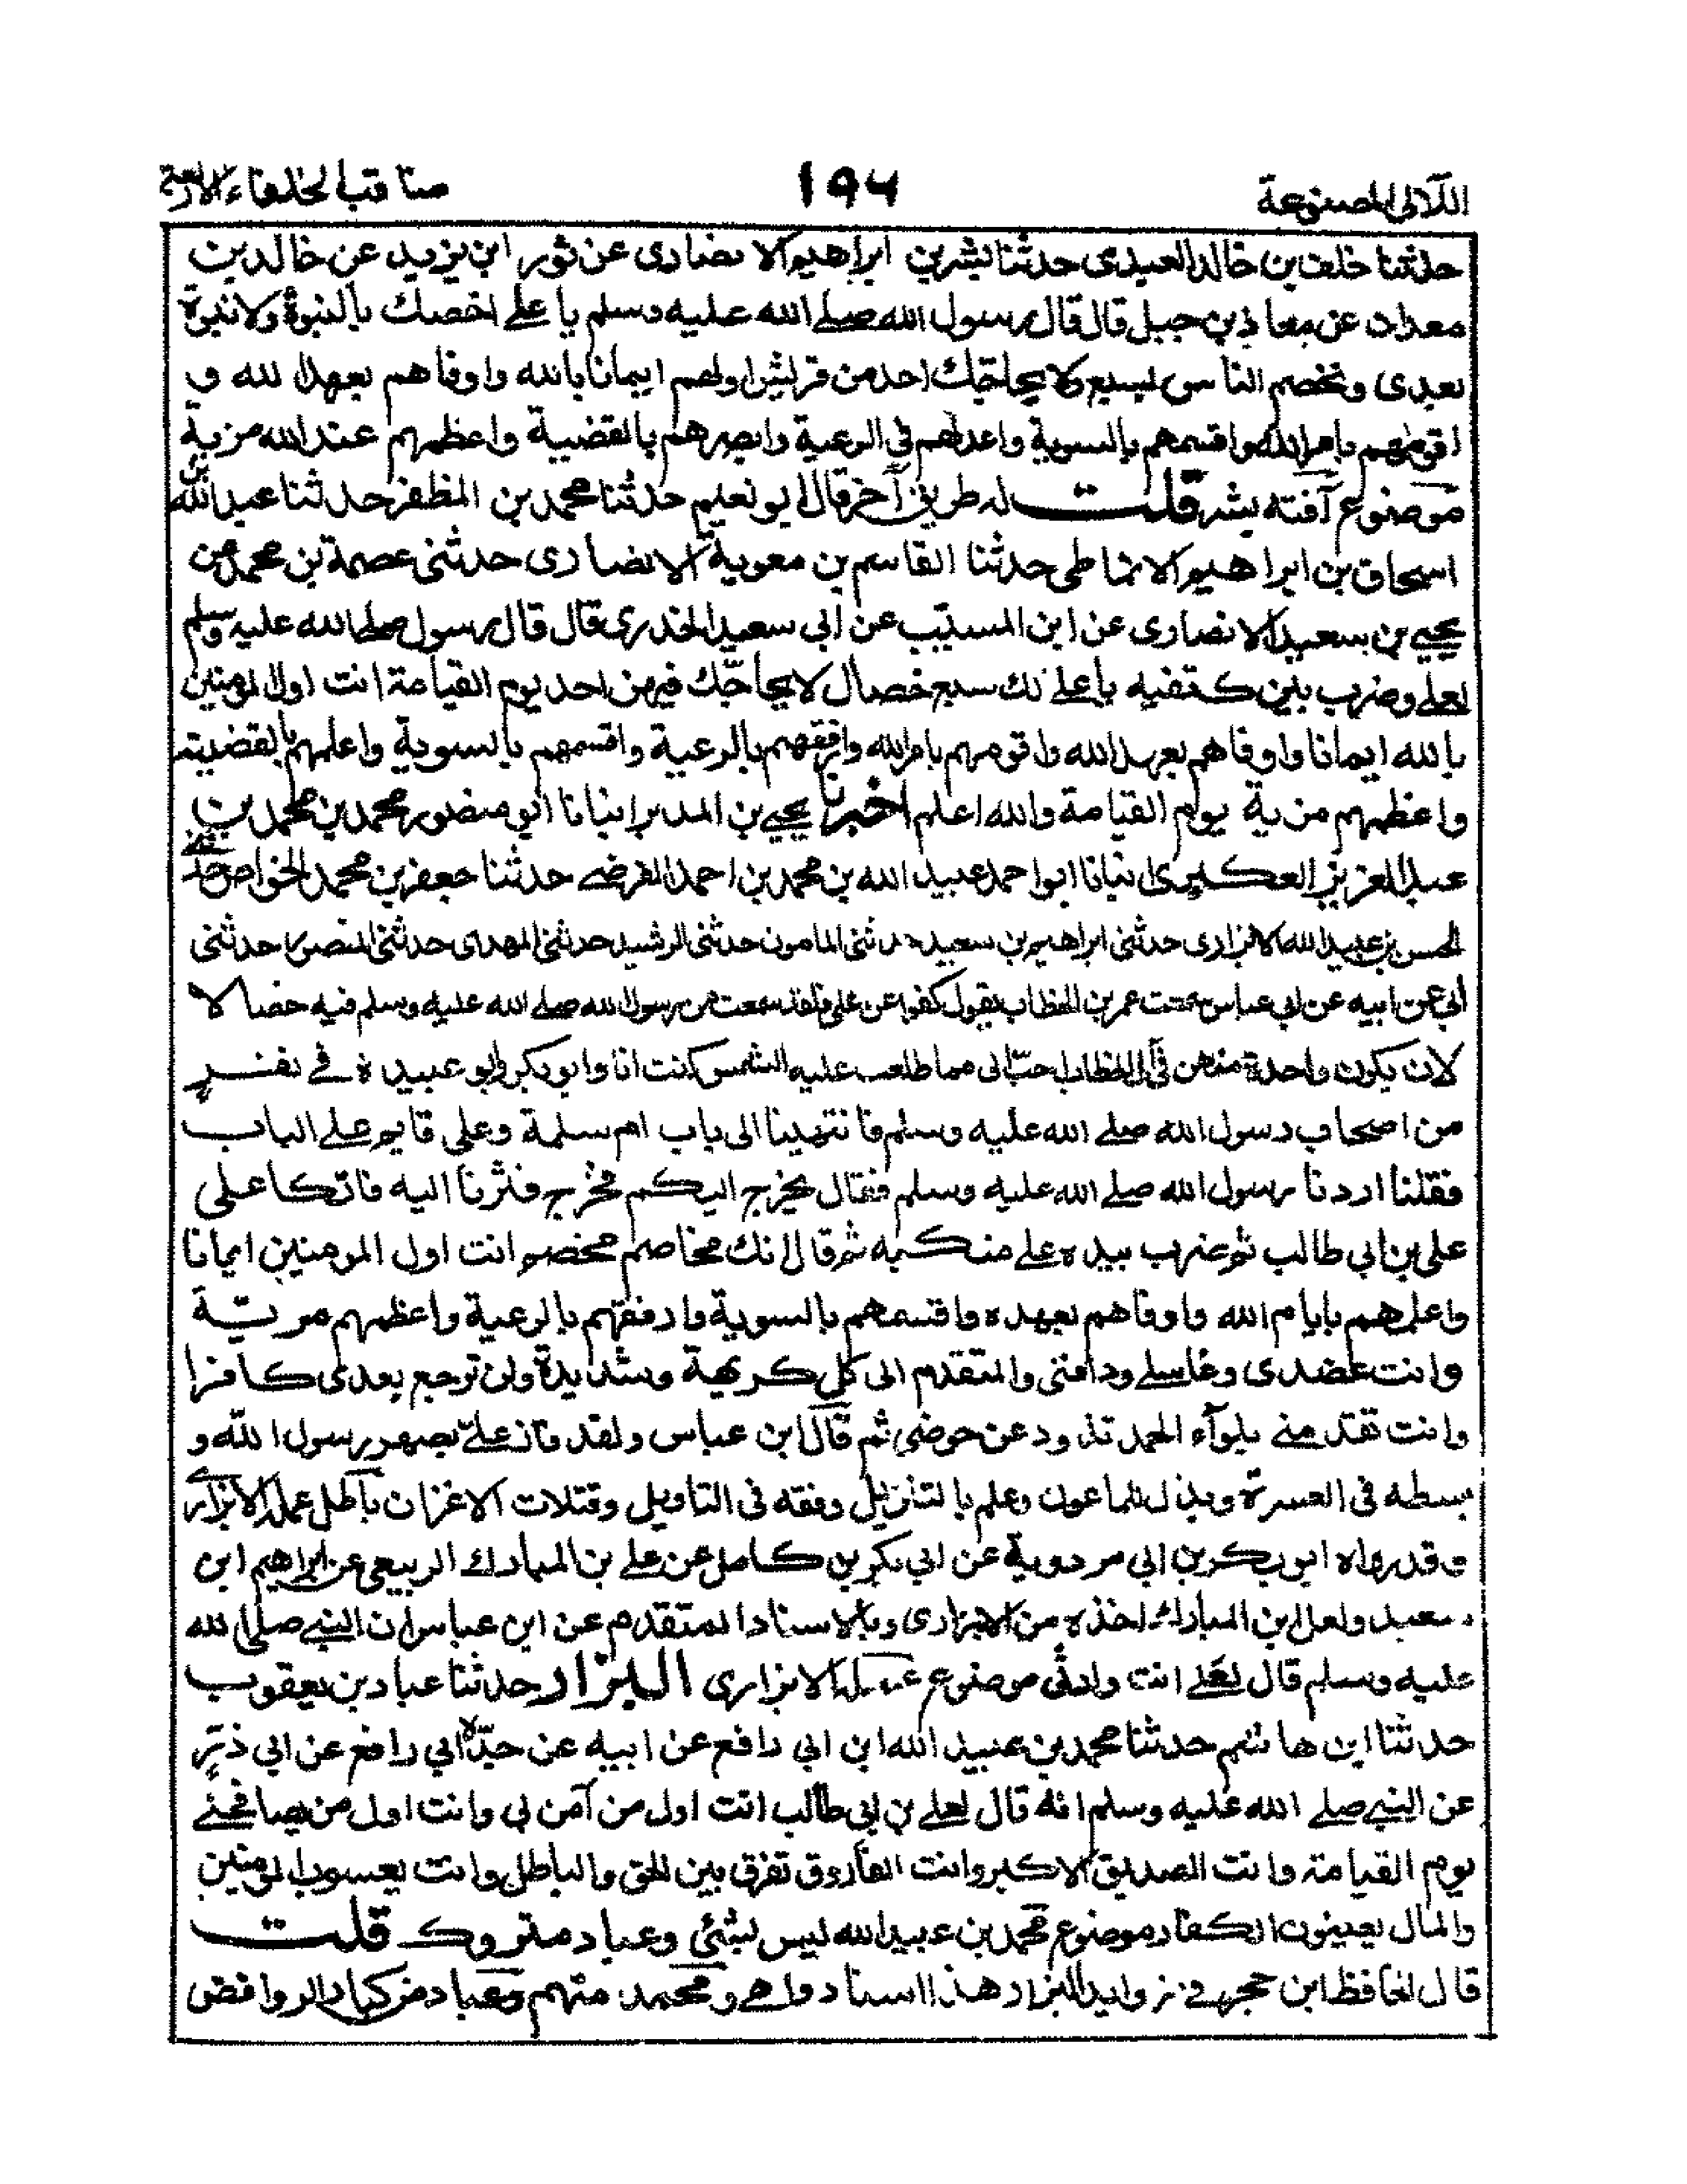 اللآلى المصنوعة
١٩٤
مناقب الخلفاء الاربعة
حدثنا خلف بن خالد العبدى حدثنا بشر بن ابراهيم الانصارى عن ثور ابن يزيد عن خالد بن
معدان عن معاذ بن جبل قال قال رسول الله صلے الله عليه وسلم يا علے اخصك بالنبوة ولا نبوة
بعدى وتخصم الناس بسبع ولا يحاجك احد من قريش اولهم ايمانا بالله واوفاهم بعهد الله و
اقومهم بامر الله واقسمهم بالسوية واعدلهم فى الرعية وابصرهم بالقضية واعظمهم عند الله مزية
موضوع آفته بشر قلت له طريق آخر قال ابو نعيم حدثنا محمد بن المظفر حدثنا عبد الله بن
اسحاق بن ابراهيم الانماطى حدثنا القاسم بن معوية الانصارى حدثنى عصمة بن محمد عن
يحيے بن سعيد الانصارى عن ابن المسيّب عن ابى سعيد الخدرى قال قال رسول صلے الله عليه وسلم
لعلے وضرب بين كتفيه يا علے لك سبع خصال لا يحاجّك فيهن احد يوم القيامة انت اول المومنين
بالله ايمانا واوفاهم بعهد الله واقومهم بامر الله وارفقهم بالرعية واقسمهم بالسوية واعلمهم بالقضية
واعظمهم مزية يوم القيامة والله اعلم اخبرنا يحيے بن المدبر انبانا ابو منصور محمد بن محمد بن
عبد العزيز العكبرى انبانا ابو احمد عبيد الله بن محمد بن احمد المفرضے حدثنا جعفر بن محمد الخواص حدثنے
الحسن بن عبيد الله الابزارى حدثنى ابراهيم بن سعيد حدثنى المامون حدثنى الرشيد حدثنى المهدى حدثنى المنصور حدثنى
ابى عن ابيه عن ابى عباس سمعت عمر بن الخطاب يقول كفوا عن على فلقد سمعت من رسول الله صلے الله عليه وسلم فيه خصالا
لان يكون واحدة منهن فى آل الخطاب احبّ الى مما طلعت عليه الشمس كنت انا وابو بكر وابو عبيدة فے نفر
من اصحاب رسول الله صلے الله عليه وسلم فانتهينا الى باب ام سلمة وعلى قايم علے الباب
فقلنا اردنا رسول الله صلے الله عليه وسلم فقال يخرج اليكم فخرج فثرنا اليه فاتكا على
على بن ابى طالب ثم ضرب بيده علے منكبه ثم قال انك مخاصم مخصم انت اول المومنين ايمانا
واعلمهم بايام الله واوفاهم بعهده واقسمهم بالسوية وارفقهم بالرعية واعظمهم مرتبة
وانت عضدى وغاسلے ودافنى والمتقدم الى كل كريهة وشديدة ولن ترجع بعدى كافرا
وانت تقدمنے بلوآء الحمد تذود عن حوضى ثم قال ابن عباس ولقد فاز علےّ بصهر رسول الله و
بسطة فى العسرة وبذل للماعون وعلم بالتنزيل وفقه فى التاويل وقتلات الاقران باطل عمله الابزارے
وقد رواه ابو بكر بن ابى مردوية عن ابى بكر بن كامل عن علے بن المبارك الربيعى عن ابراهيم ابن
سعيد ولعل ابن المبارك اخذه من الابزارى وبالاسناد المتقدم عن ابن عباس ان النبے صلى الله
عليه وسلم قال لعلے انت وارثى موضوع عمله الابزارى البزار حدثنا عباد بن يعقوب
حدثنا ابن هاشم حدثنا محمد بن عبيد الله ابن ابى رافع عن ابيه عن جدّه ابى رافع عن ابى ذرّ
عن النبے صلے الله عليه وسلم انه قال لعلے بن ابى طالب انت اول من آمن بى وانت اول من يصافحنے
يوم القيامة وانت الصديق الاكبر وانت الفاروق تفرق بين الحق والباطل وانت يعسوب المومنين
والمال يعسوب الكفار موضوع محمد بن عبيد الله ليس بشئ وعباد متروك قلت
قال الحافظ ابن حجر فے زوايد البزار هذا اسناد واهے ومحمد متهم وعباد من كبار الروافض